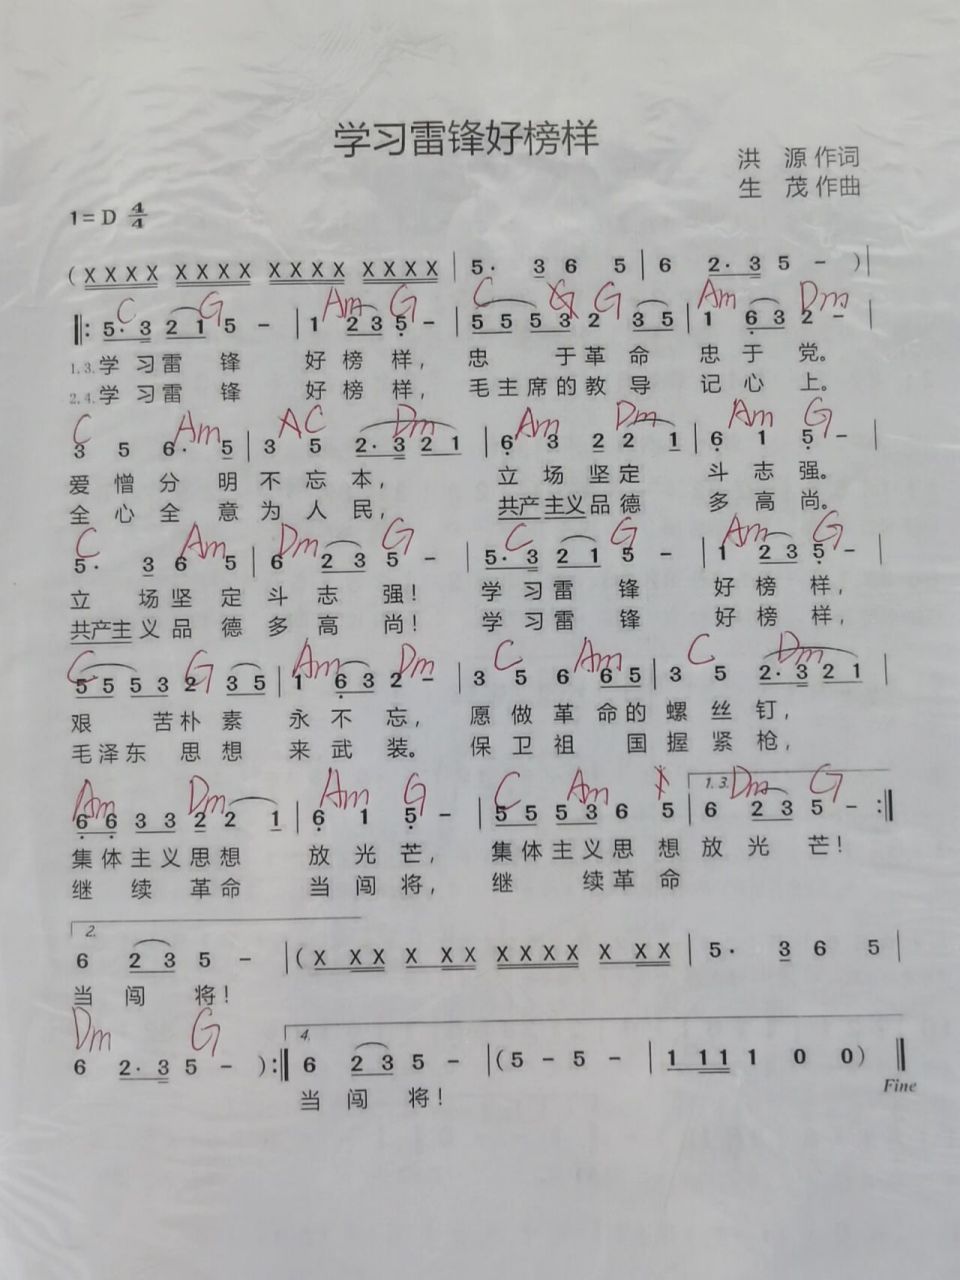 学习雷锋好榜样
洪 源 作词
生 茂 作曲
1=D 4/4
(X X X X X X X X X X X X X X X X | 5· 3 6 5 | 6 2·3 5 - )|
C G Am G C G Am Dm
‖: 5·3 2 1 5 - | 1 2 3 5 - | 5 5 5 3 2 3 5 | 1 6 3 2 - |
1.3.学 习 雷 锋 好 榜 样, 忠 于 革 命 忠 于 党。
2.4.学 习 雷 锋 好 榜 样, 毛 主 席 的 教 导 记 心 上。
C Am C Dm Am Dm Am G
3 5 6· 5 | 3 5 2·3 2 1 | 6 3 2 2 1 | 6 1 5 - |
爱 憎 分 明 不 忘 本, 立 场 坚 定 斗 志 强。
全 心 全 意 为 人 民, 共产 主义 品 德 多 高 尚。
C Am Dm G C G Am G
5· 3 6 5 | 6 2 3 5 - | 5·3 2 1 5 - | 1 2 3 5 - |
立 场 坚 定 斗 志 强! 学 习 雷 锋 好 榜 样,
共产主 义 品 德 多 高 尚! 学 习 雷 锋 好 榜 样,
C G Am Dm C Am C Dm
5 5 5 3 2 3 5 | 1 6 3 2 - | 3 5 6 6 5 | 3 5 2·3 2 1 |
艰 苦 朴 素 永 不 忘, 愿 做 革 命 的 螺 丝 钉,
毛 泽 东 思 想 来 武 装。 保 卫 祖 国 握 紧 枪,
Am Dm Am G C Am Dm G
6 6 3 3 2 2 1 | 6 1 5 - | 5 5 5 3 6 5 | 1.3. 6 2 3 5 - :‖
集 体 主 义 思 想 放 光 芒, 集 体 主 义 思 想 放 光 芒!
继 续 革 命 当 闯 将, 继 续 革 命
2.
6 2 3 5 - |( X X X X X X X X X X X X X | 5· 3 6 5 |
当 闯 将!
Dm G
6 2·3 5 - ):‖ 4. 6 2 3 5 - |( 5 - 5 - | 1 1 1 1 0 0 )‖
当 闯 将!
Fine